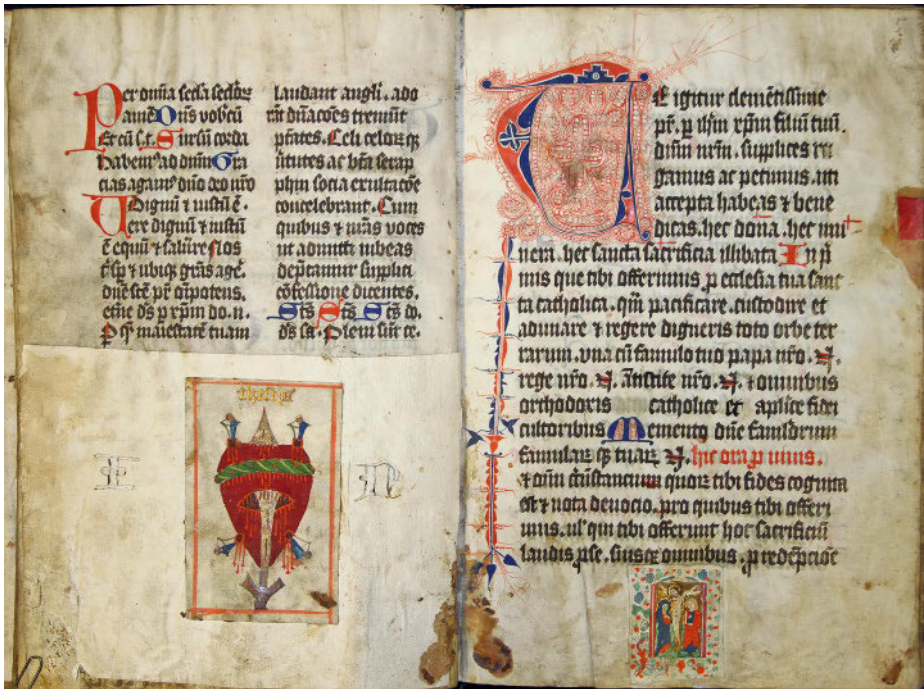 Per om̄ia secl̄a secl̄oꝝ
amē Dn̄s vobcū
Et cū s. t. Sursū corda
habemꝰ ad dn̄m Gra
cias agamꝰ dn̄o deo nr̄o
Dignū ⁊ iustū ē.
Vere dignū ⁊ iustū
ē equū ⁊ salūre Nos
t̄ sp̄ ⁊ ubiqꝫ grās agē.
dn̄e sc̄e pr̄ om̄ipotens.
etn̄e ds̄ ꝑ xp̄m do. n.
P qꝫ maiestatē tuam
laudant angl̄i. ado
rāt dn̄acōes tremūt
ptātes. Celi celoꝝ qꝫ
ututes ac bt̄a serap
phin socia exultacōe
concelebrant. Cum
quibus ⁊ nr̄as voces
ut admitti iubeas
dep̄camur supplici
cōfessione dicentes.
Sc̄s Sc̄s Sc̄s do.
ds̄ sa. Pleni sūt ce.
Te igitur clemētissime
pr̄. ꝑ ih̄m xp̄m filiū tuū.
dn̄m nr̄m. supplices ro
gamus ac petimus. uti
accepta habeas ⁊ bene
dicas. hec dona. hec mu
nera. hec sancta sacrificia illibata. In p̄
mis que tibi offerimus ꝑ ecclesia tua sanc
ta catholica. qm̄ pacificare. custodire et
adunare ⁊ regere digneris toto orbe ter
rarum. vna cū famulo tuo papa nr̄o. N.
rege nr̄o. N. Antistite nr̄o. N. ⁊ omnibus
orthodoxis catholice et aplīce fidei
cultoribus Memento dn̄e famuloꝝum
famulaꝝ qꝫ tuaꝝ N. hic ora ꝑ viuis.
⁊ oīm c̄ūstancium quoꝝ tibi fides cognita
est ⁊ nota deuocio. pro quibus tibi offeri
mus. ul̄ qui tibi offerunt hoc sacrificiū
laudis ꝑ se. suisqꝫ omnibus. ꝑ redēpcione